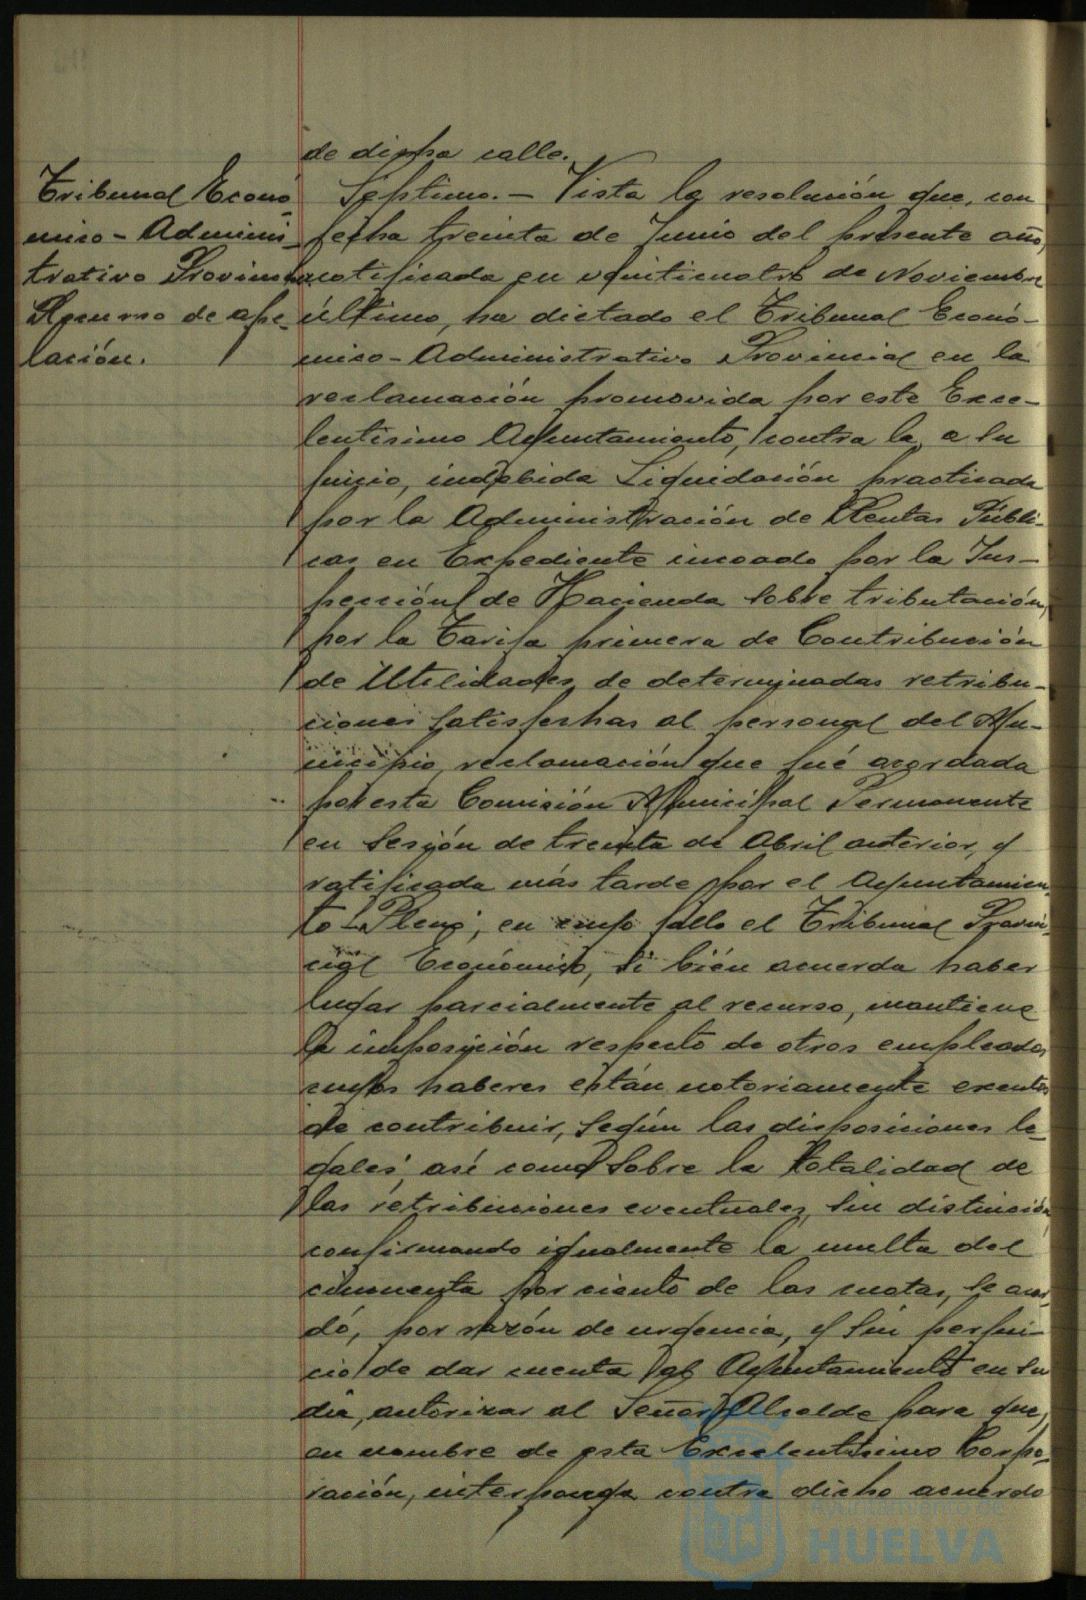 de dicha calle.
Tribunal Econó-
mico - Adminis-
trativo Provincial
Recurso de ape-
lación.
Séptimo. - Vista la resolución que, con
fecha treinta de Junio del presente año,
notificada en veinticuatro de Noviembre
último, ha dictado el Tribunal Econó-
mico - Administrativo Provincial en la
reclamación promovida por este Exce-
lentísimo Ayuntamiento, contra la, a su
juicio, indebida Liquidación practicada
por la Administración de Rentas Públi-
cas en Expediente incoado por la Ins-
pección de Hacienda sobre tributación,
por la Tarifa primera de Contribución
de Utilidades, de determinadas retribu-
ciones satisfechas al personal del Mu-
nicipio, reclamación que fué acordada
por esta Comisión Municipal Permanente
en Sesión de treinta de Abril anterior, y
ratificada más tarde por el Ayuntamien-
to - Pleno; en cuyo fallo el Tribunal Provin-
cial Económico, si bién acuerda haber
lugar parcialmente al recurso, mantiene
la imposición respecto de otros empleados
cuyos haberes están notoriamente exentos
de contribuir, según las disposiciones le-
gales; así como sobre la totalidad de
las retribuciones eventuales, sin distinción
confirmando igualmente la multa del
cincuenta por ciento de las cuotas, se acor-
dó, por razón de urgencia, y sin perjui-
cio de dar cuenta al Ayuntamiento en su
día, autorizar al Señor Alcalde para que,
en nombre de esta Excelentísima Corpo-
ración, interponga contra dicho acuerdo
Ayuntamiento de
HUELVA